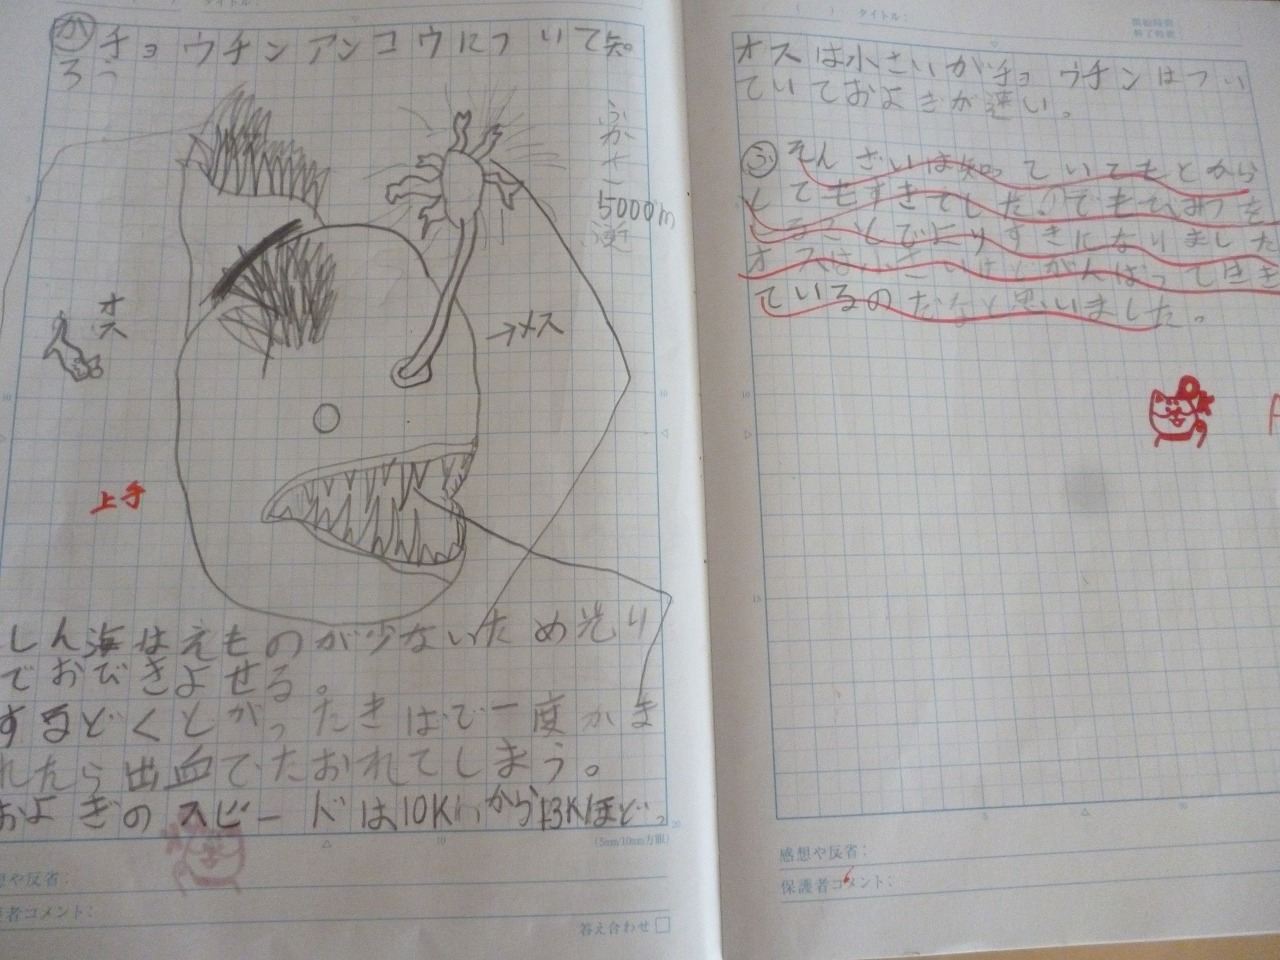 タイトル：
か チョウチンアンコウについて知
ろう
ふかさ
5000m
オス
→メス
上手
しん海はえものが少ないため光り
でおびきよせる。
するどくとがったきばで一度かま
れたら出血でたおれてしまう。
およぎのスピードは10Kmから13Kほど。
(5mm/10mm方眼)
想や反省：
者コメント：
答え合わせ
タイトル：
オスは小さいがチョウチンはつい
ていておよぎが速い。
ふ そんざいは知っていてもとから
とてもすきでした。でもひみつを
ることでよりすきになりました
オスは小さいけどがんばって生き
ているのだなと思いました。
感想や反省：
保護者コメント：